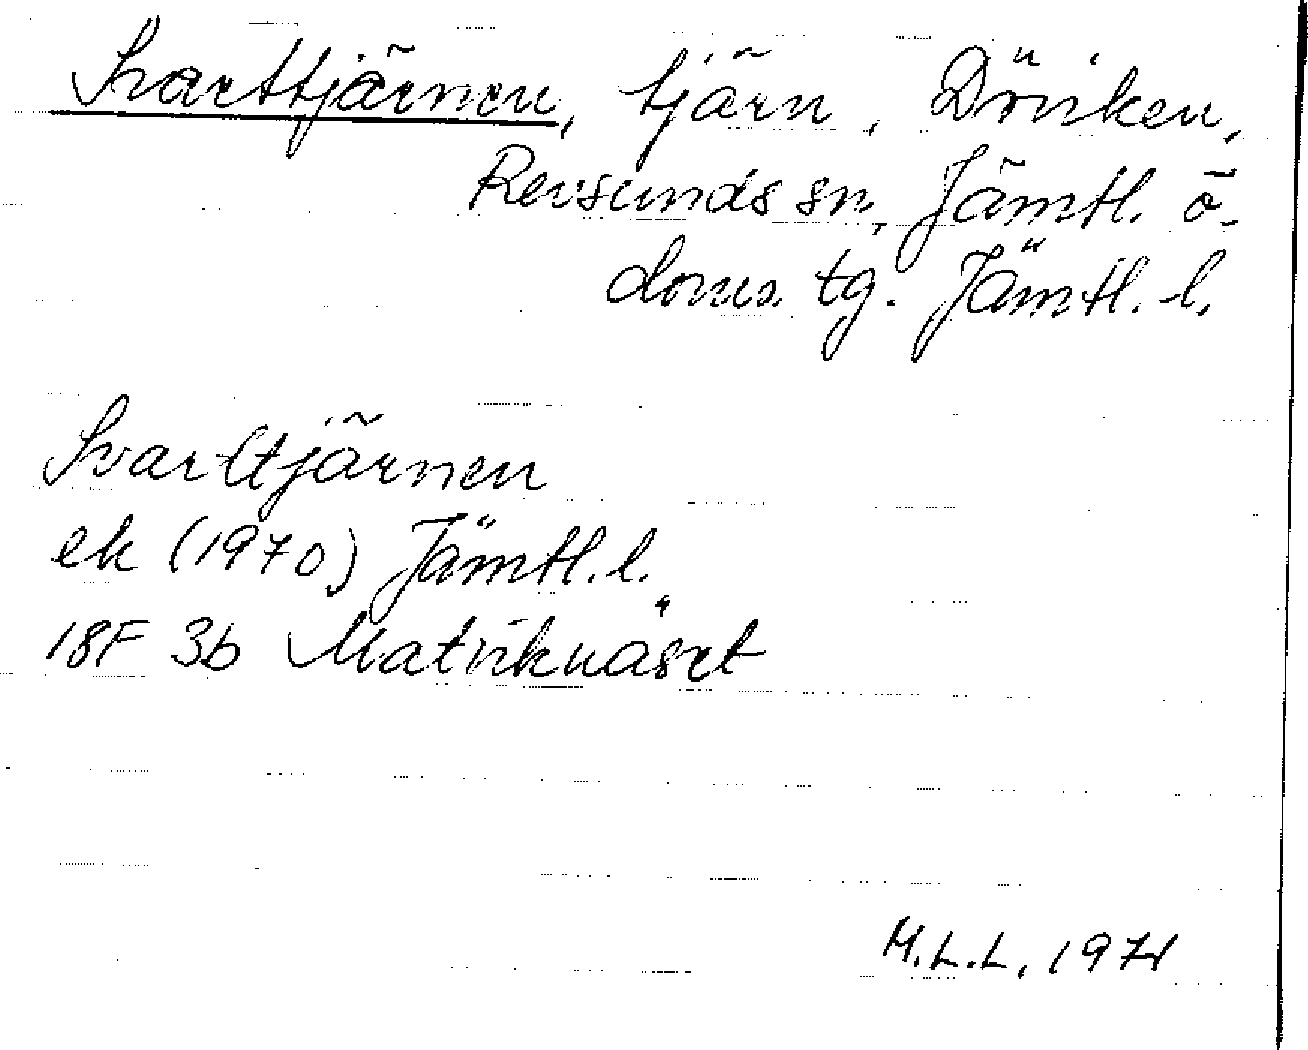 Svarttjärnen, tjärn, Döviken,
Revsunds sn, Jämtl. ö.
doms. tg. Jämtl. l.
Svarttjärnen
ek (1970) Jämtl. l.
18F 3b Matviknäset
M.L.L, 1971